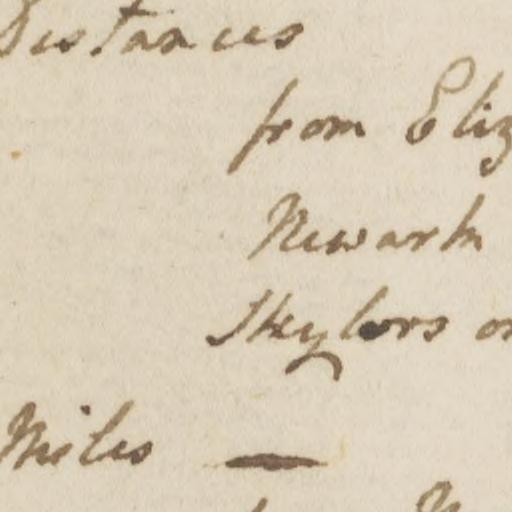 Distances
from Eliz
Newark
Skylors or
Miles —